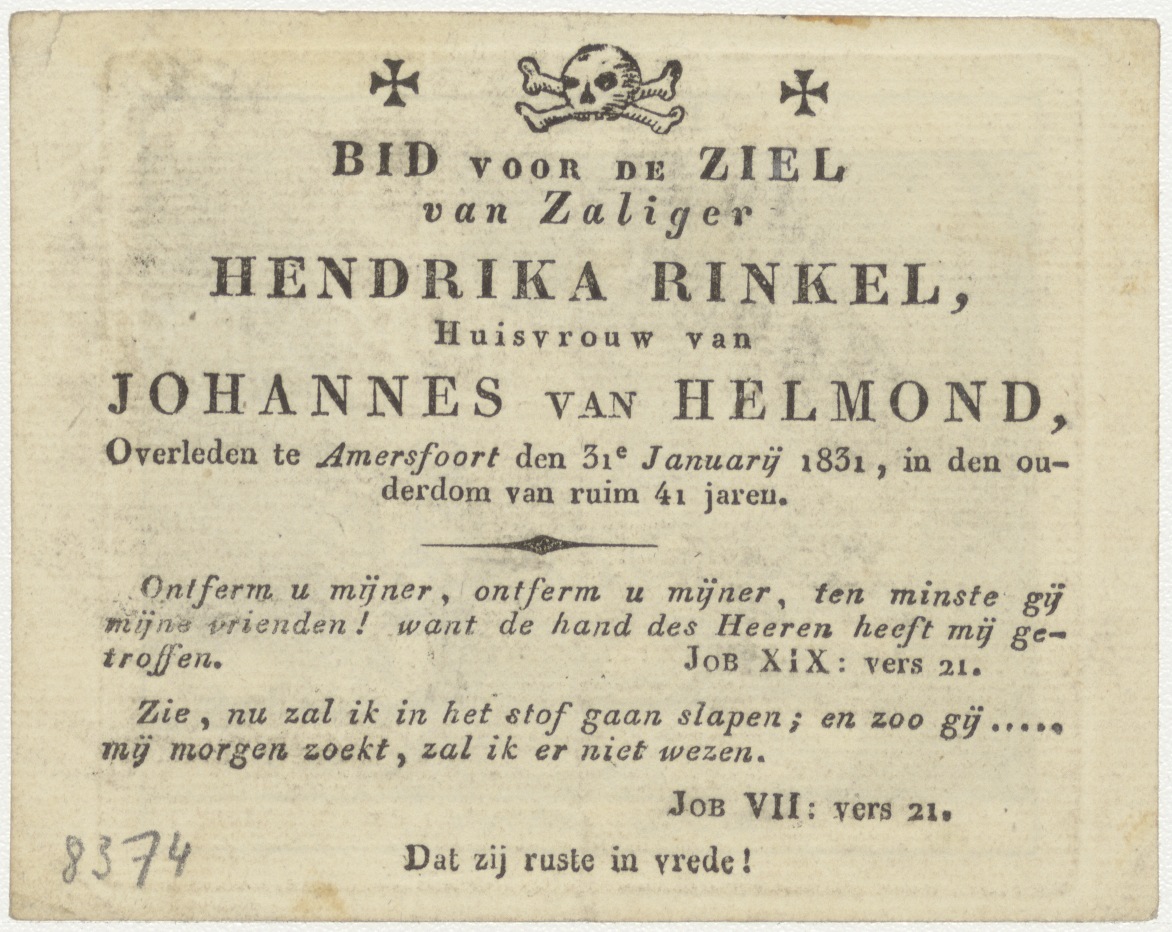 BID VOOR DE ZIEL
van Zaliger
HENDRIKA RINKEL,
Huisvrouw van
JOHANNES VAN HELMOND,
Overleden te Amersfoort den 31e Januarij 1831, in den ou-
derdom van ruim 41 jaren.
Ontferm u mijner, ontferm u mijner, ten minste gij
mijne vrienden! want de hand des Heeren heeft mij ge-
troffen. JOB XIX: vers 21.
Zie, nu zal ik in het stof gaan slapen; en zoo gij.....
mij morgen zoekt, zal ik er niet wezen.
JOB VII: vers 21.
Dat zij ruste in vrede!
8374